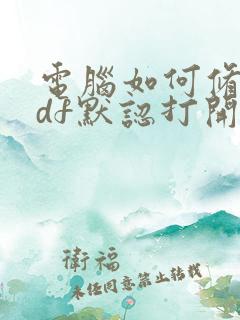 電腦如何修
df默認打開
衛福
未經同意禁止轉載